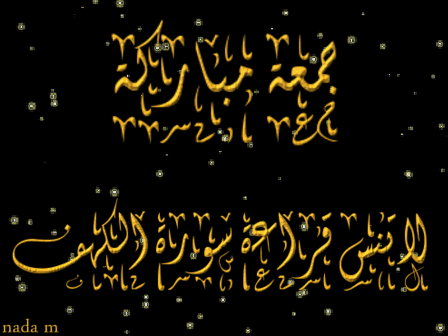 جمعة مباركة
لا تنس قراءة سورة الكهف
nada m